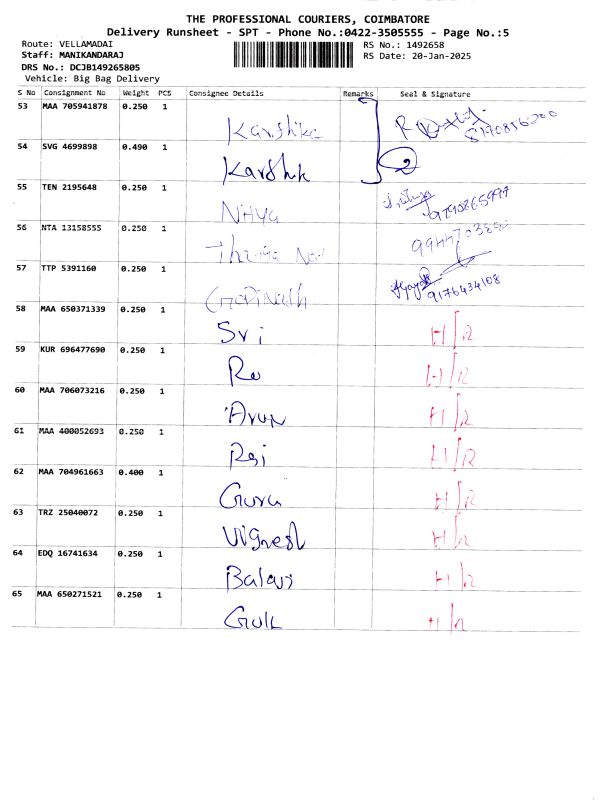 THE PROFESSIONAL COURIERS, COIMBATORE
Delivery Runsheet - SPT - Phone No.:0422-3505555 - Page No.:5
Route: VELLAMADAI RS No.: 1492658
Staff: MANIKANDARAJ RS Date: 20-Jan-2025
DRS No.: DCJB149265805
Vehicle: Big Bag Delivery
S No Consignment No Weight PCS Consignee Details Remarks Seal & Signature
53 MAA 705941878 0.250 1 Karshika
54 SVG 4699898 0.490 1 Karshik 2
55 TEN 2195648 0.250 1 Nitya
56 NTA 13158555 0.250 1
57 TTP 5391160 0.250 1 9176434108
58 MAA 650371339 0.250 1 Sri H/R
59 KUR 696477690 0.250 1 Ra H/R
60 MAA 706073216 0.250 1 Arun H/R
61 MAA 400052693 0.250 1 Raj H/R
62 MAA 704961663 0.400 1 Guru H/R
63 TRZ 25040072 0.250 1 Vignesh H/R
64 EDQ 16741634 0.250 1 Balaji H/R
65 MAA 650271521 0.250 1 H/R